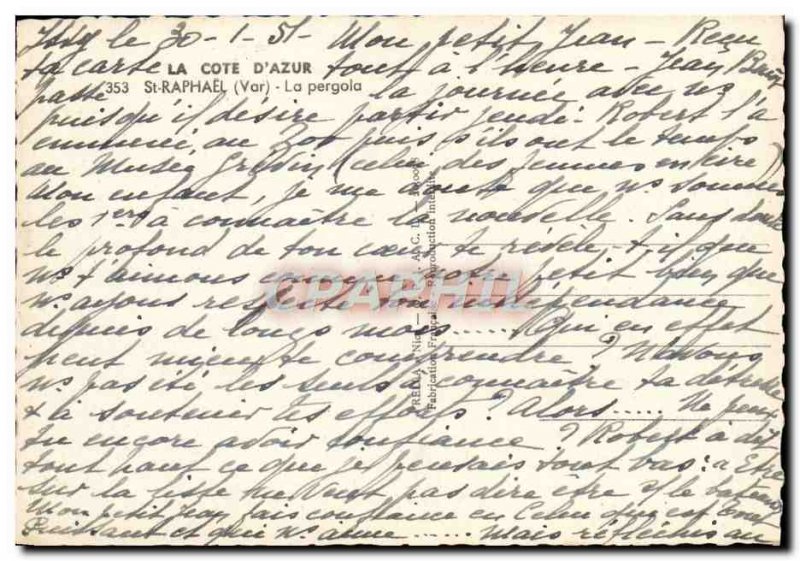 le 30-1-51- Mon petit Jean - Reçu
ta carte tout à l'heure - Jean
LA COTE D'AZUR
353 St-RAPHAËL (Var) - La pergola
passe la journée avec ns
puisqu'il désire partir jeudi. Robert l'a
emmené au Zoo puis s'ils ont le temps
au Musée Grévin (celui des femmes en cire)
Mon enfant, je me doute que ns sommes
les 1ers à connaître la nouvelle. Sans doute
le profond de ton cœur te révèle t il que
ns t'aimons comme notre petit bien que
ns ayons respecté ton indépendance
depuis de longs mois ...... Qui en effet
peut mieux te comprendre ? N'avons
ns pas été les seuls à connaître ta détresse
& à soutenir tes efforts ? Alors ..... Ne peux
tu encore avoir confiance ? Robert a dit
tout haut ce que je pensais tout bas : " Etre
sur la liste ne veut pas dire être s/ le bateau
Mon petit Jean fais confiance en Celui qui est tout
Puissant et qui ns aime ...... Mais réfléchis au
Fabrication Française - Reproduction interdite
CPAPHIL